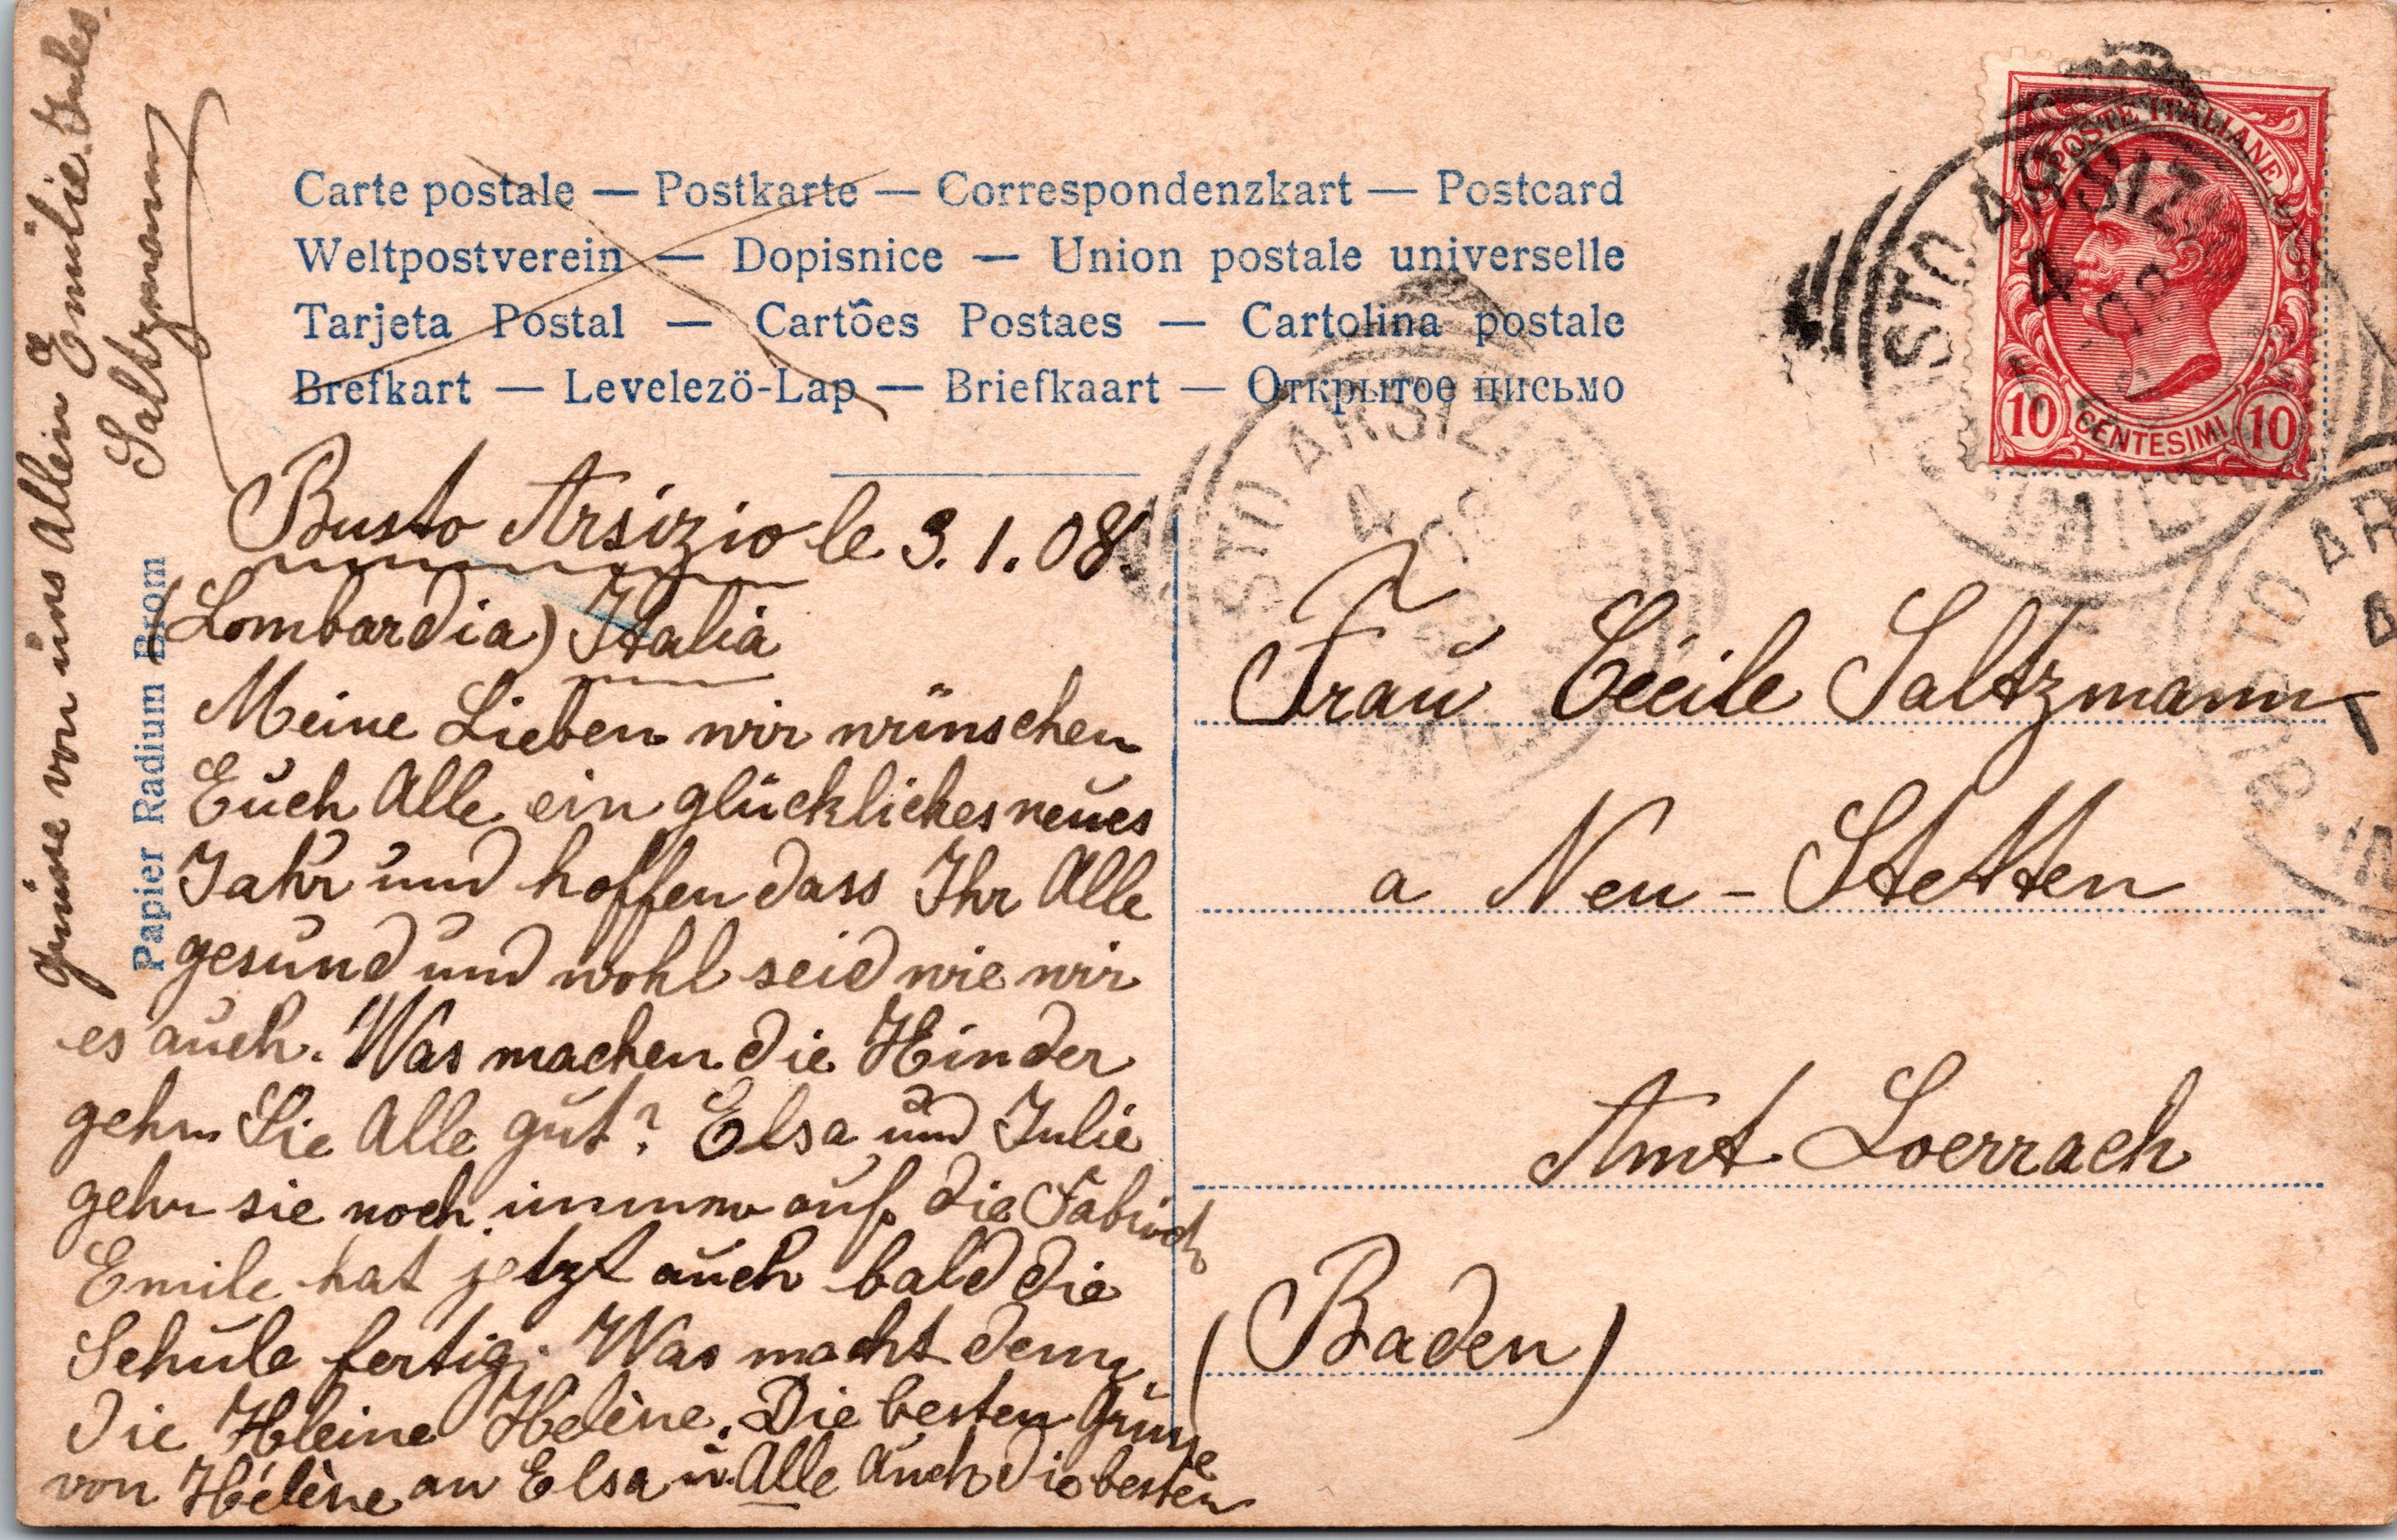 Carte postale — Postkarte — Correspondenzkart — Postcard
Weltpostverein — Dopisnice — Union postale universelle
Tarjeta Postal — Cartões Postaes — Cartolina postale
Brefkart — Levelezö-Lap — Briefkaart — Открытое письмо
POSTE ITALIANE
10 CENTESIMI 10
BUSTO ARSIZIO
4
08
STO ARSIZIO
4
08
BUSTO AR
4
Papier Radium Brom
Busto Arsizio le 3.1.08.
(Lombardia) Italia
Meine Lieben wir wünschen
Euch Alle ein glückliches neues
Jahr und hoffen dass Ihr Alle
gesund und wohl seid wie wir
es auch. Was machen die Kinder
gehn Sie Alle gut? Elsa und Julie
gehn sie noch immer auf die Fabrick
Emile hat jetzt auch bald die
Schule fertig. Was macht denn
die Kleine Helène. Die besten Grüsse
von Hélène an Elsa u. Alle Auch die besten
Grüsse von uns Allein Emilie Jules
Saltzmann
Frau Cécile Saltzmann
a Neu-Stetten
Amt Loerrach
(Baden)